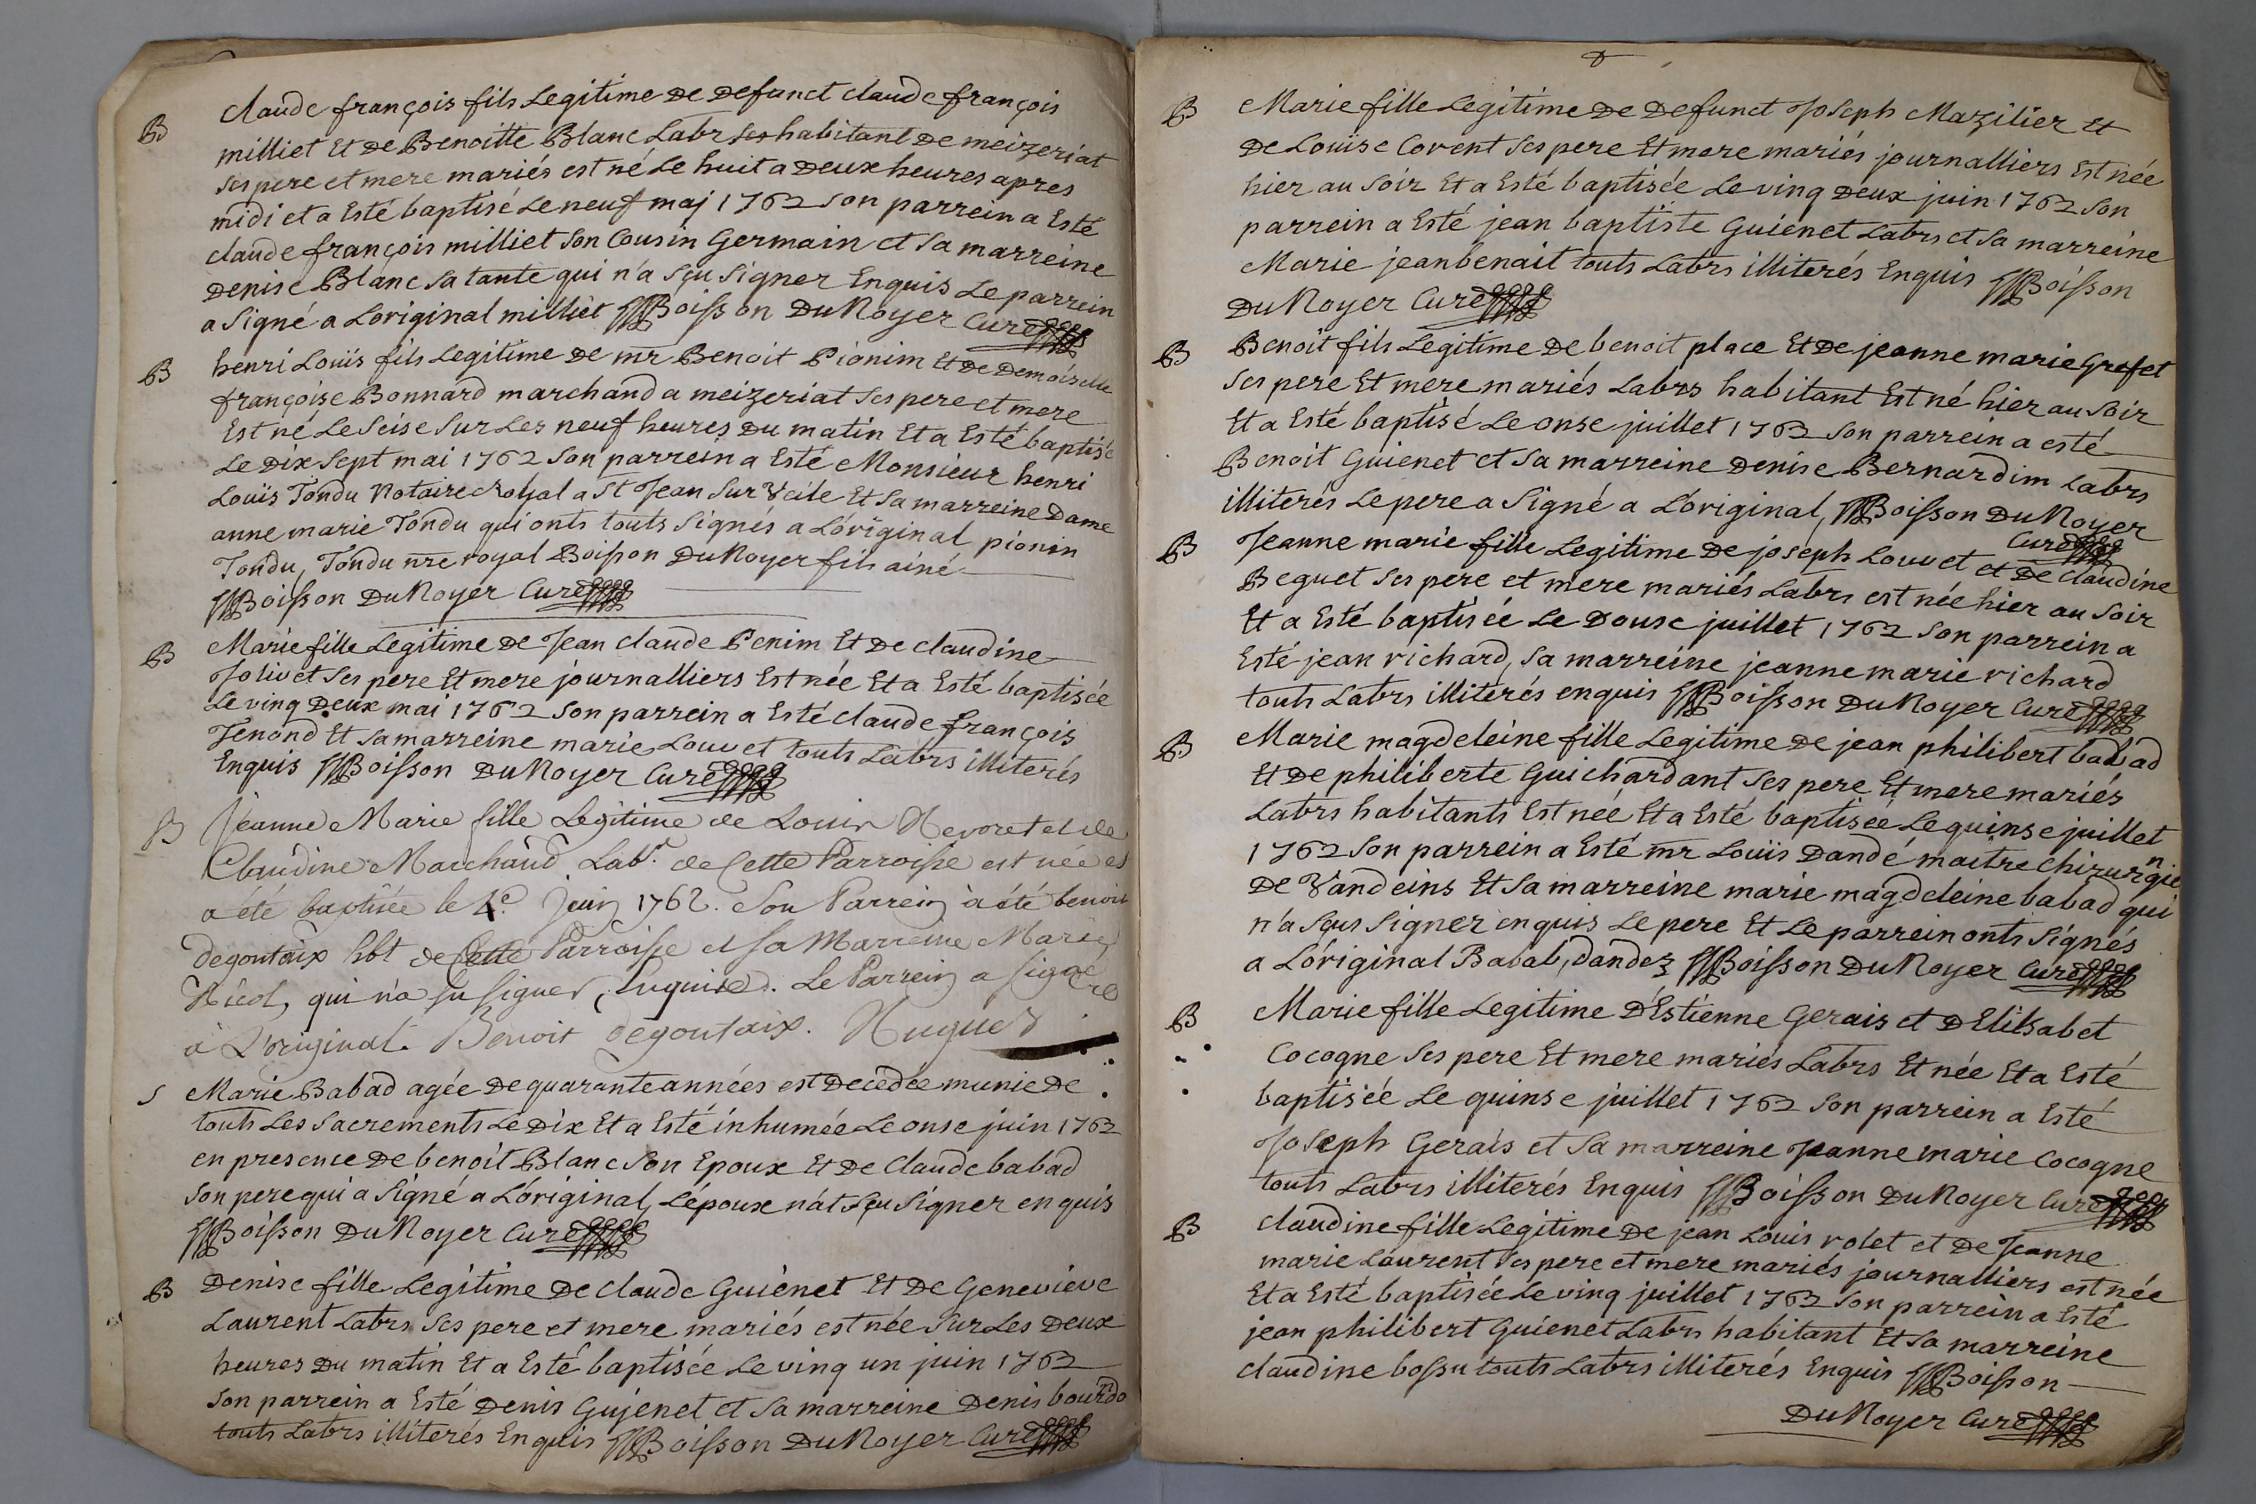 B claude françois fils Legitime De Defunct claude françois
milliet Et De Benoitte Blanc Labr ses habitant De meizeriat
ses pere et mere mariés est né Le huit a Deux heures apres
midi et a Esté baptisé Le neuf maj 1762 son parrein a Esté
claude françois milliet son Cousin Germain et sa marreine
Denise Blanc sa tante qui n'a sçu signer Enquis Le parrein
a signé a L'original milliet Boisson DuNoyer Curé
B henri Louïs fils Legitime De mr Benoit Pionim Et De Demoiselle
françoise Bonnard marchand a meizeriat ses pere et mere
Est né Le seise sur Les neuf heures Du matin Et a Esté baptisé
Le Dix sept mai 1762 son parrein a Esté Monsieur henri
Louïs Tondu Notaire Royal a St Jean sur Veile Et sa marreine Dame
anne marie Tondu qui onts touts signés a L'original pionin
Tondu, Tondu nre royal Boisson DuNoyer fils ainé
Boisson DuNoyer Curé
B Marie fille Legitime De Jean claude Penim Et De claudine
Jolivet ses pere Et mere journalliers Est née Et a Esté baptisée
Le vinq Deux mai 1762 son parrein a Esté claude françois
Tenond Et sa marreine marie Louvet touts Labrs illiterés
Enquis Boisson DuNoyer Curé
B Jeanne Marie fille Légitime de Louis Nevoret et de
Claudine Marchand Labr. de Cette Parroisse est née et
a été baptisée le Juin 1762. Son Parrein à été benoit
degoutaix hbt de Cette Parroisse et sa Marreine Marie
Nicol, qui n'a su signer, Enquise. Le Parrein a signé
à L'original. Benoit degoutaix. Huguet
S Marie Babad agée De quarante années est Decedée munie De
touts Les sacrements Le Dix Et a Esté inhumée Le onse juin 1762
en presence De benoit Blanc son Epoux Et De claude babad
son pere qui a signé a L'original, L'époux n'at sçu signer enquis
Boisson DuNoyer Curé
B Denise fille Legitime De claude Guienet Et De Genevieve
Laurent Labrs ses pere et mere mariés est née sur Les Deux
heures Du matin Et a Esté baptisée Le vinq un juin 1762
son parrein a Esté Denis Gujenet et sa marreine Denis bourdon
touts Labrs illiterés Enquis Boisson DuNoyer Curé
B Marie fille Legitime De Defunct Joseph Mazilier Et
De Louïse Corent ses pere Et mere mariés journalliers Est née
hier au soir Et a Esté baptisée Le vinq Deux juin 1762 son
parrein a Esté jean baptiste Guienet Labrs et sa marreine
Marie jeanbenait touts Labrs illiterés Enquis Boisson
DuNoyer Curé
B Benoit fils Legitime De benoit place Et De jeanne marie Grefet
ses pere Et mere mariés Labrs habitant Est né hier au soir
Et a Esté baptisé Le onse juillet 1762 son parrein a esté
Benoit Guienet et sa marreine Denise Bernardim Labrs
illiterés Le pere a signé a L'original, Boisson DuNoyer
Curé
B Jeanne marie fille Legitime De joseph Louvet et De claudine
Beguet ses pere et mere mariés Labrs est née hier au soir
Et a Esté baptisée Le Douse juillet 1762 son parrein a
Esté jean richard, sa marreine jeanne marie richard
touts Labrs illiterés enquis Boisson DuNoyer Curé
B Marie magdeleine fille Legitime De jean philibert babad
Et De philiberte Guichardant ses pere Et mere mariés
Labrs habitants Est née Et a Esté baptisée Le quinse juillet
1762 son parrein a Esté mr Louïs Dandé maitre chirurgien
De Vandeins Et sa marreine marie magdeleine babad qui
n'a sçus signer enquis Le pere Et Le parrein onts signés
a L'original Babab, Dandez Boisson DuNoyer Curé
B Marie fille Legitime D'Estienne Gerais et D'Elisabet
Cocogne ses pere Et mere mariés Labrs Et née Et a Esté
baptisée Le quinse juillet 1762 son parrein a Esté
Joseph Gerais et sa marreine Jeanne marie Cocogne
touts Labrs illiterés Enquis Boisson DuNoyer Curé
B claudine fille Legitime De jean Louis rolet et De Jeanne
marie Laurent ses pere et mere mariés journalliers est née
Et a Esté baptisée Le vinq juillet 1762 son parrein a Esté
jean philibert Guienet Labrs habitant Et sa marreine
claudine bossu touts Labrs illiterés Enquis Boisson
DuNoyer Curé